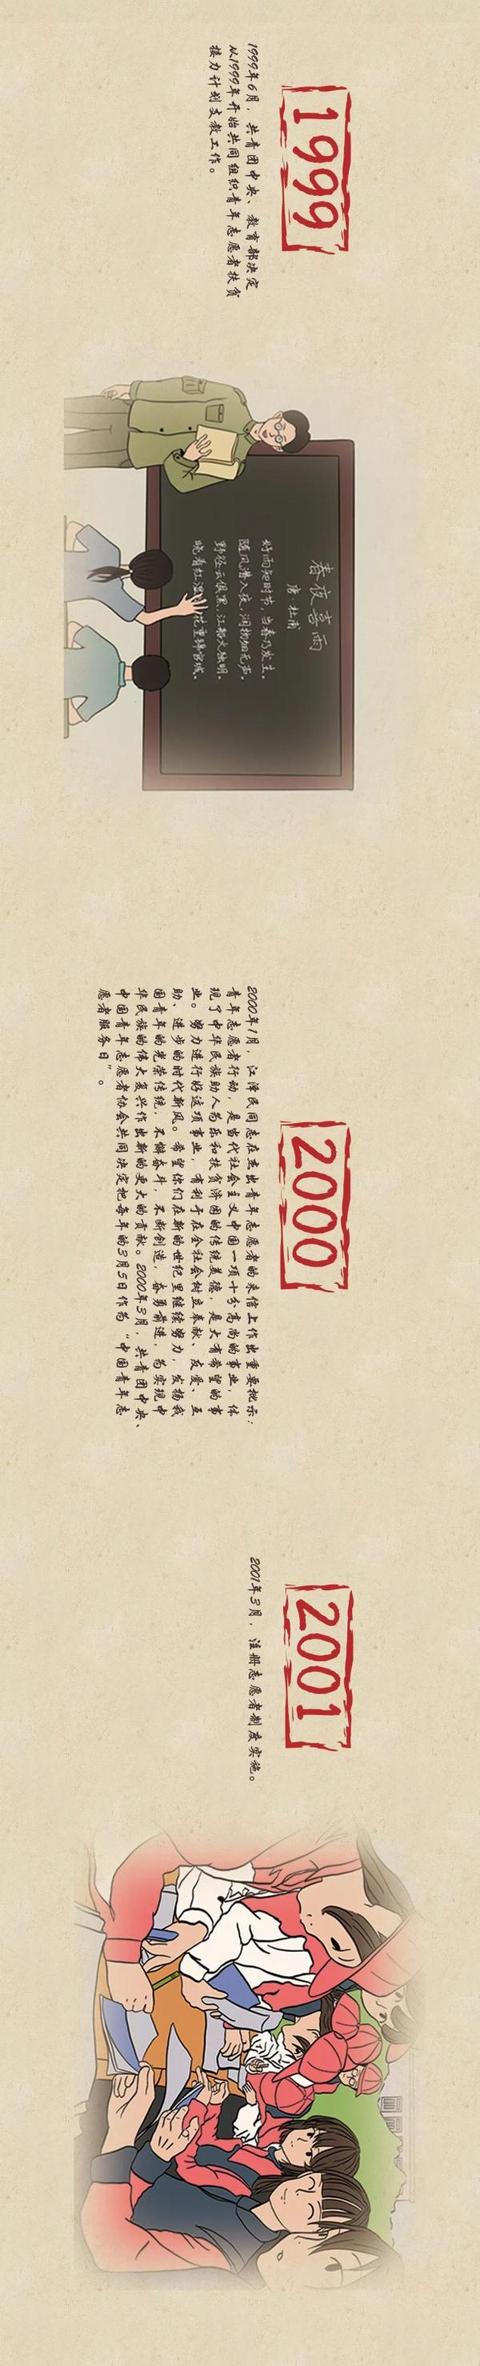 1999
1999年6月，共青团中央、教育部决定
从1999年开始共同组织青年志愿者扶贫
接力计划支教工作。
春夜喜雨
唐·杜甫
好雨知时节，当春乃发生。
随风潜入夜，润物细无声。
野径云俱黑，江船火独明。
晓看红湿处，花重锦官城。
2000
2000年1月，江泽民同志在杰出青年志愿者的来信上作出重要批示：
青年志愿者行动，是当代社会主义中国一项十分高尚的事业，体
现了中华民族助人为乐和扶贫济困的传统美德，是大有希望的事
业。努力进行好这项事业，有利于在全社会树立奉献、友爱、互
助、进步的时代新风。希望你们在新的世纪里继续努力，发扬我
国青年的光荣传统，不懈奋斗，不断创造，奋勇前进，为实现中
华民族的伟大复兴作出新的更大的贡献。2000年3月，共青团中央、
中国青年志愿者协会共同决定把每年的3月5日作为“中国青年志
愿者服务日”。
2001
2001年3月，注册志愿者制度实施。